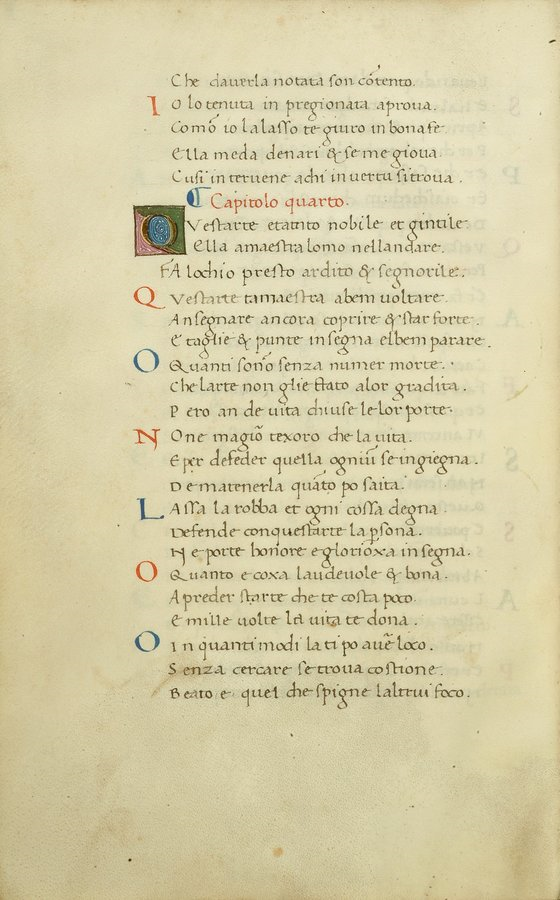 Che dauerla notata son cõtento.
IO lo tenuta in pregionata aprova.
Comõ io la lasso te giuro in bona fe.
Ella me da denari & se me gioua.
Cusi interuene a chi in uertu si trova.
Capitolo quarto.
QVestarte etanto nobile et gintile
Ella amaestra lomo nellandare.
FA lochio presto ardito & segnorile.
QVestarte tamaestra a bem voltare.
Ansegnare ancora coprire & star forte.
E taglie & punte insegna el bem parare.
O Quanti sonõ senza numer morte.
Che larte non glie stato alor gradita.
Pero an de uita chiuse le lor porte.
NOn e magiõ texoro che la uita.
E per defẽder quella ogniũ se ingiegna.
De matenerla quãto po saita.
LAssa la robba et ogni cossa degna.
Defende con questarte la persona.
Ne porte honore e glorioxa insegna.
O Quanto e coxa laudeuole & bona.
Apreder starte che te costa poco
E mille volte la vita te dona.
O In quanti modi la ti po auẽ loco.
Senza cercare se trova costione.
Beato e quel che spigne laltrui foco.